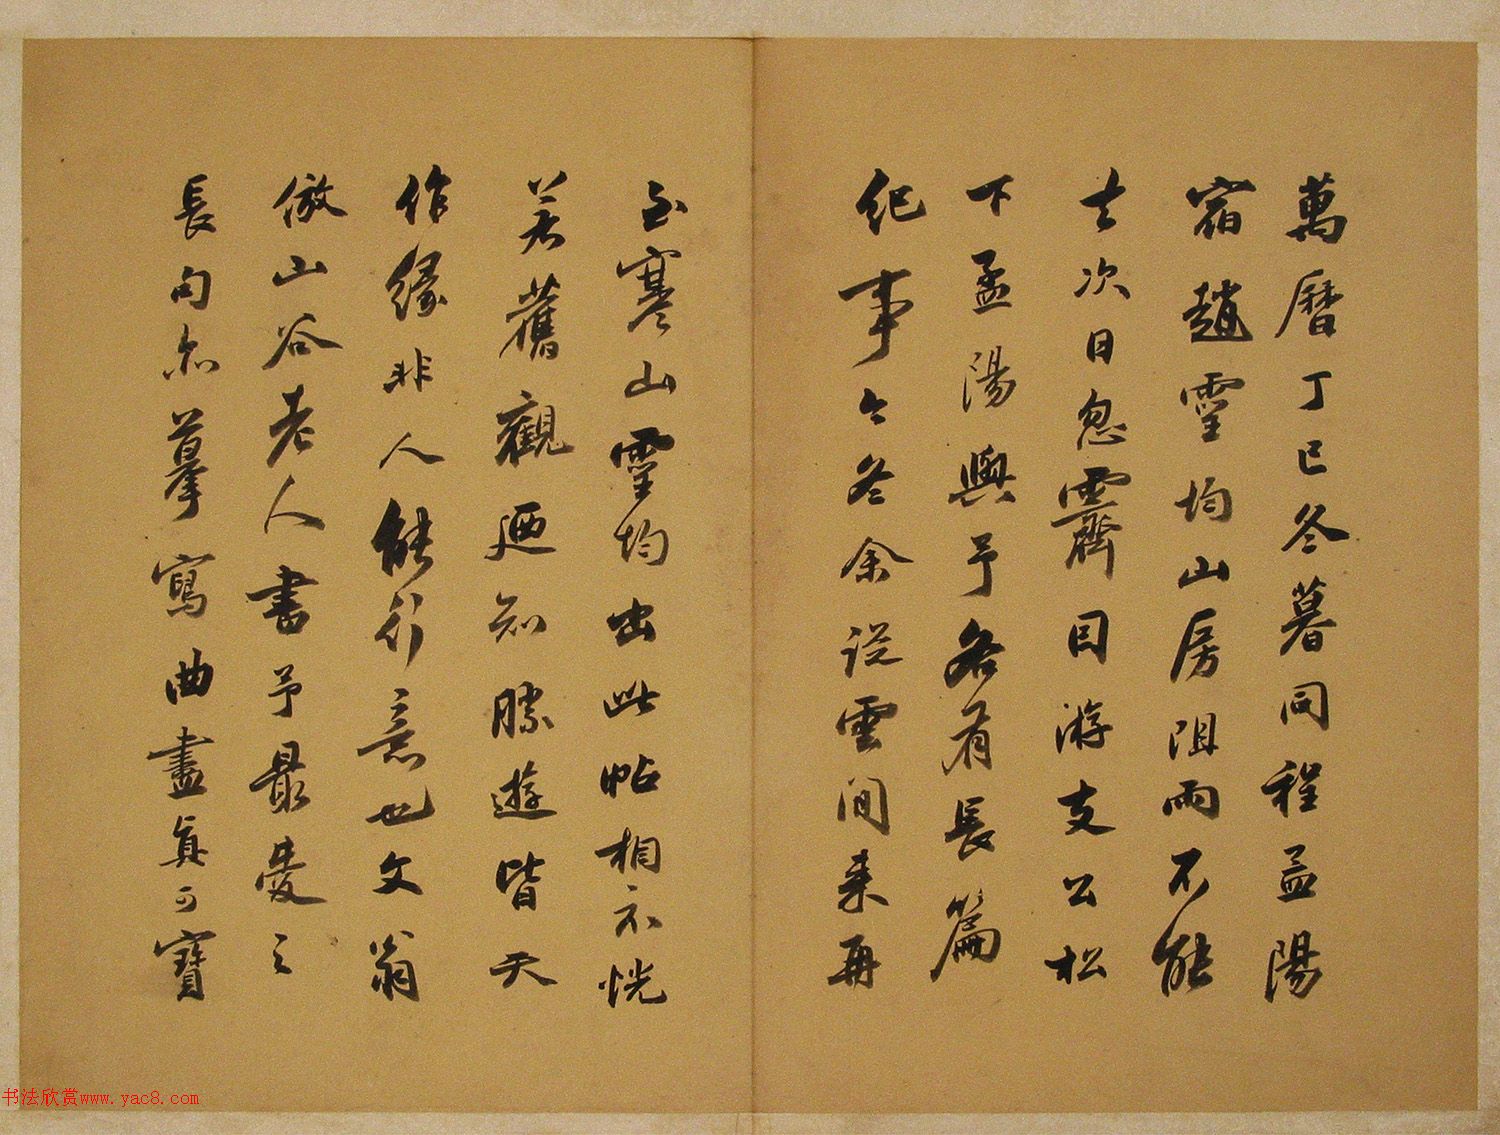 萬曆丁巳冬暮同程孟陽
宿趙靈均山房阻雨不能
去次日忽霽因游支公松
下孟陽與予各有長篇
紀事今冬余從雲間来再
至寒山靈均出此帖相示恍
若舊觀迺知勝遊皆天
作緣非人能行意也文翁
倣山谷老人書予最愛之
長句亦摹寫曲盡真可寶
书法欣赏www.yac8.com